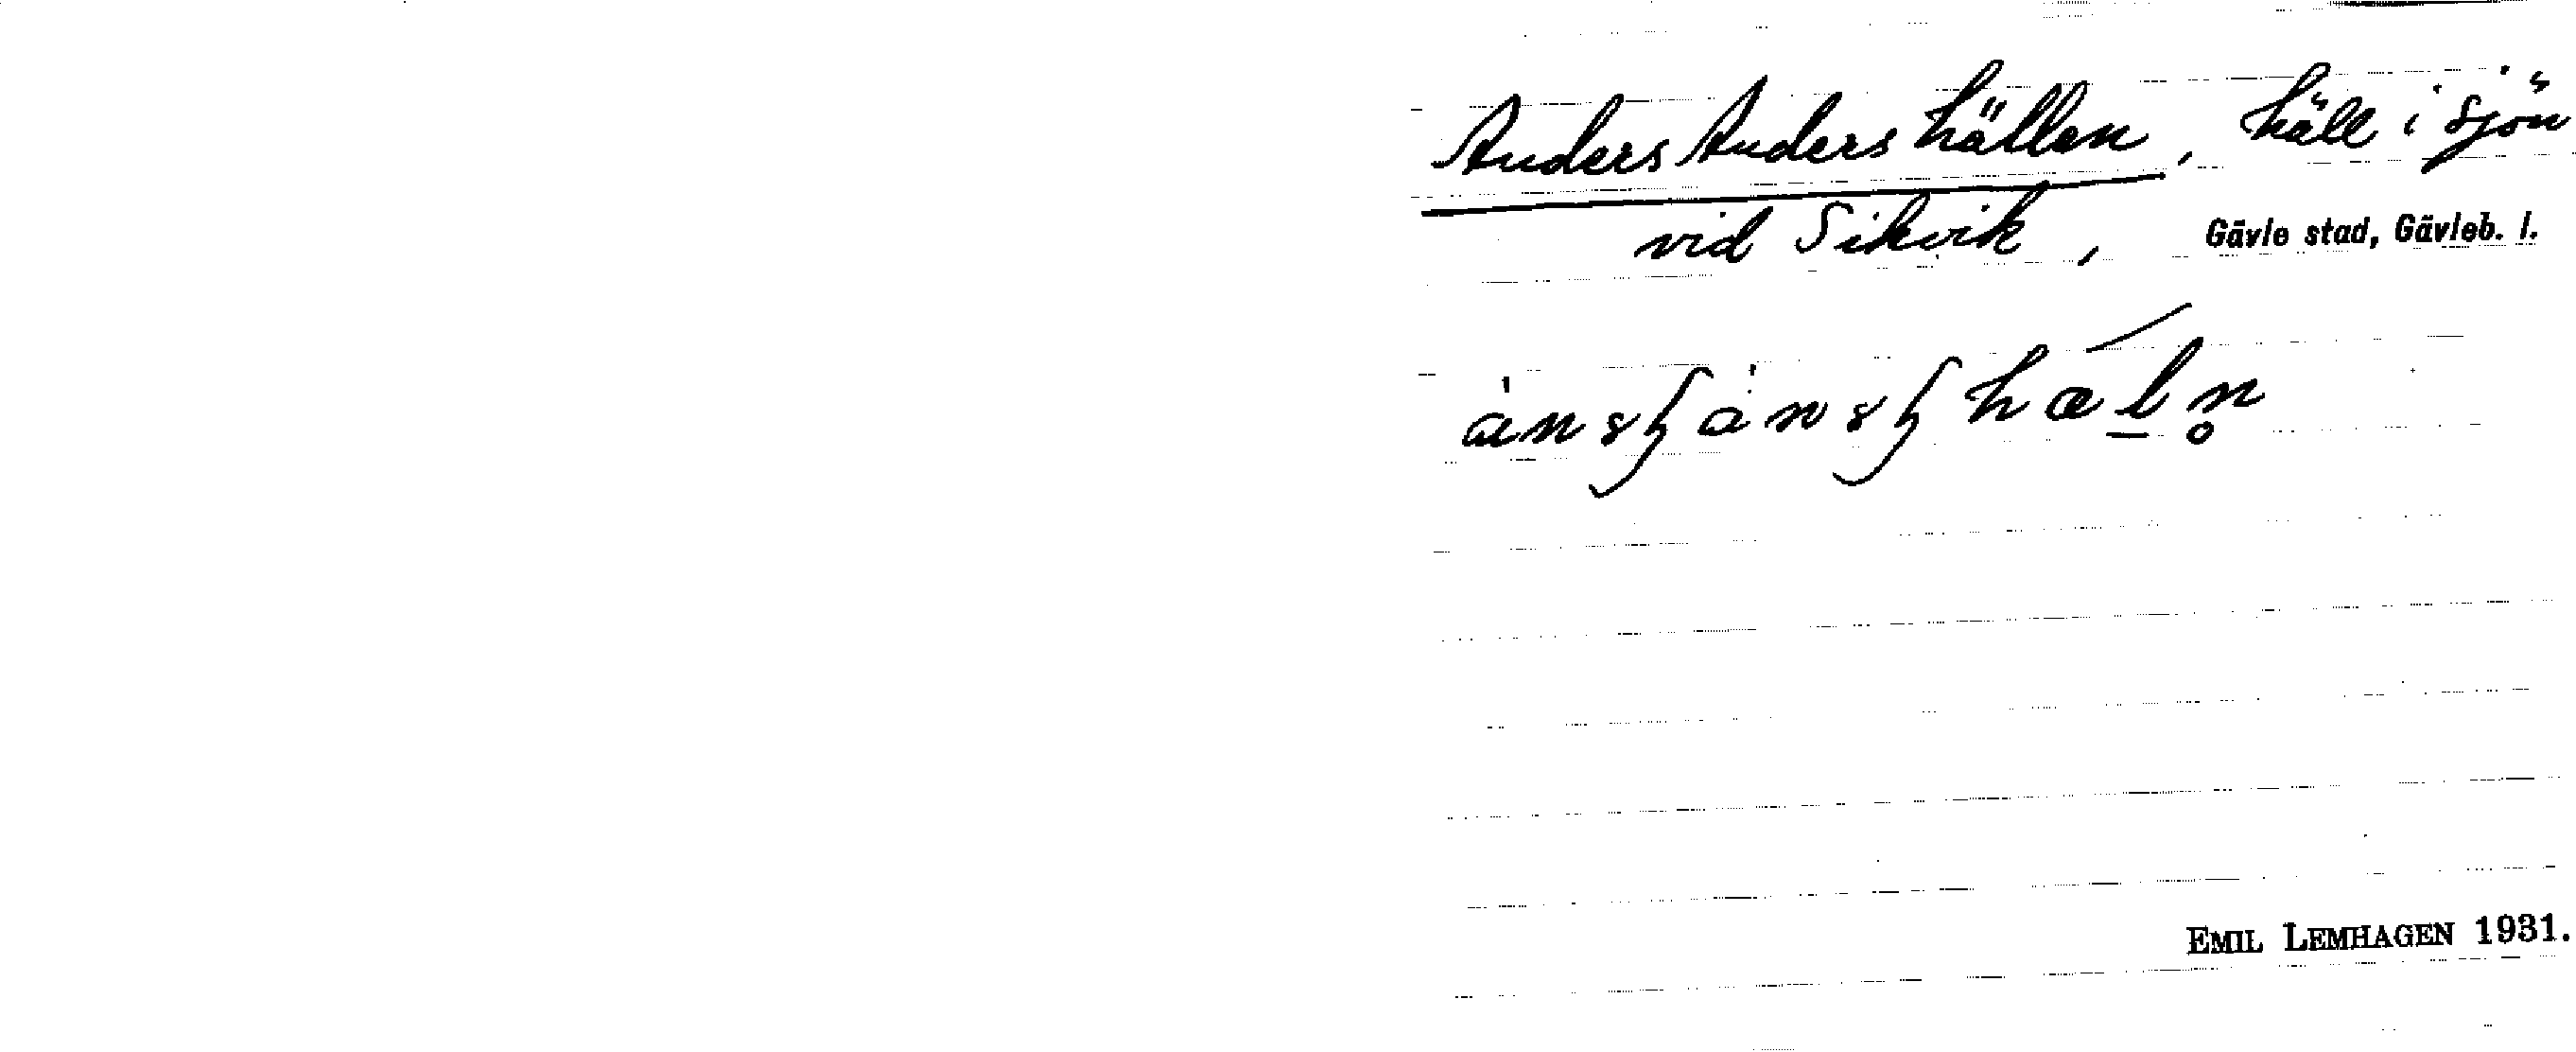 Anders Anders hällen, häll i sjön
vid Sikvik, Gävle stad, Gävleb. l.
EMIL LEMHAGEN 1931.